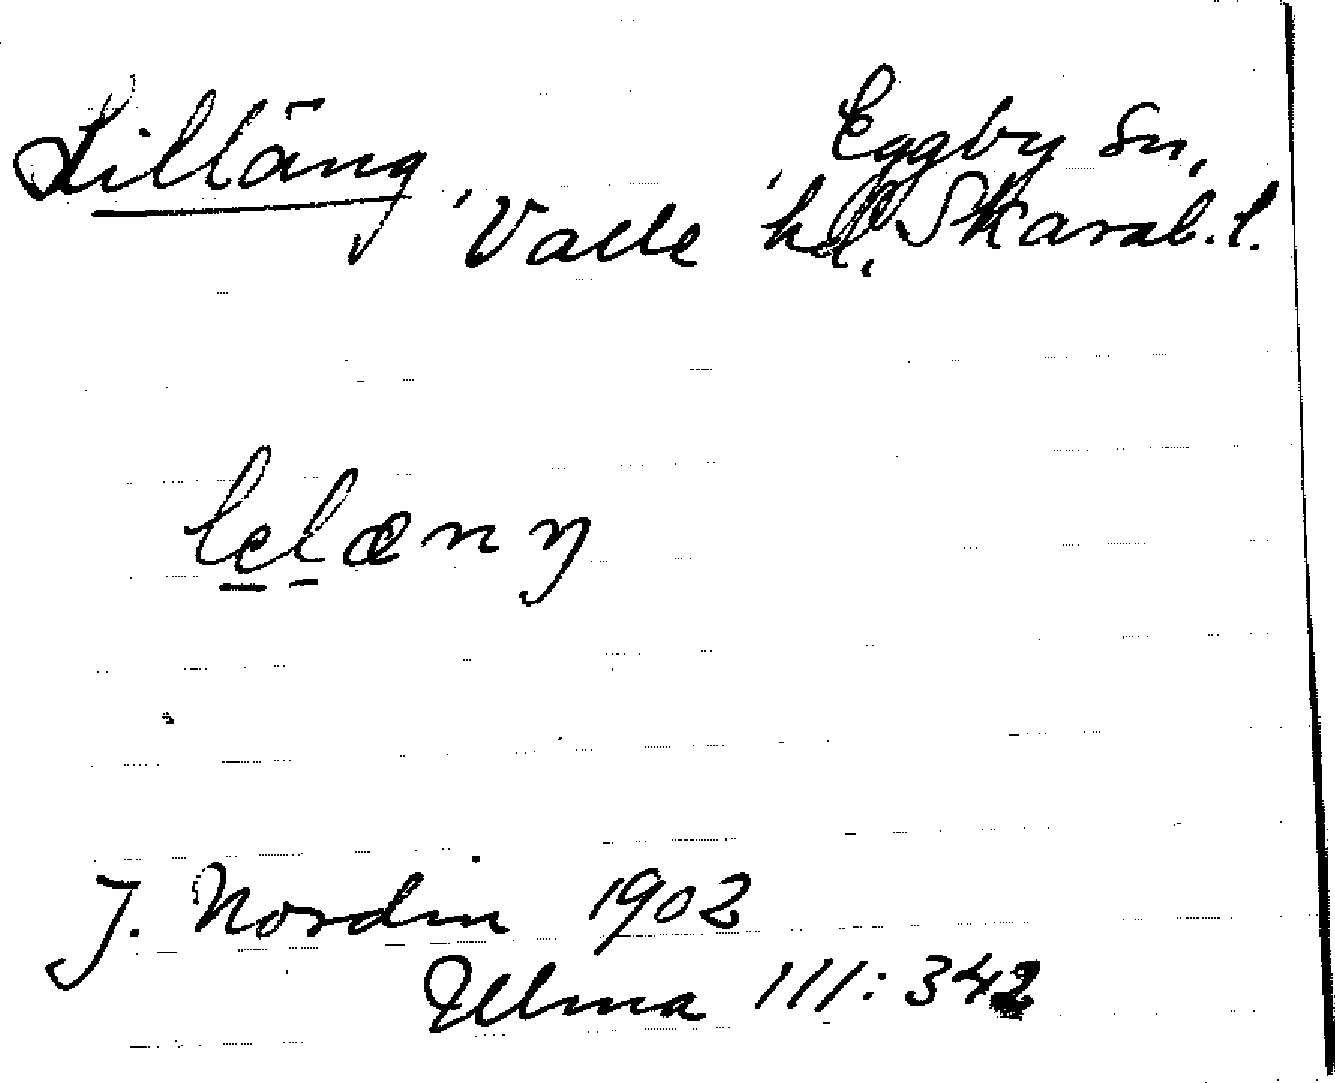 Lilläng
Eggby sn,
Valle hd, Skarab. l.
J. Nordin 1902
Ulma 111: 342